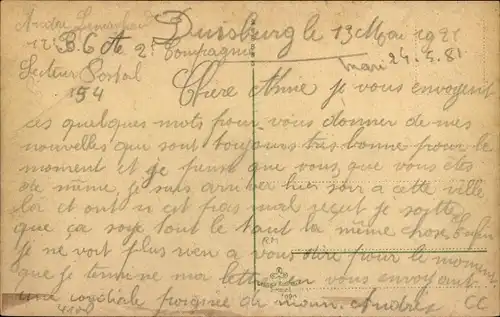 Duisburg le 13 Mai 1921
B.C.A. 2e Compagnie
mari 24.5.81
Secteur Postal
194
Chere Amie je vous envoyent
ces quelques mots pour vous donner de mes
nouvelles que sont toujours très bonne pour le
moment et je pense que vous, que vous êtes
de même, je suis arriver hier soir a cette ville
la et ont n est pas mal reçut je
que ça soye tout le temps la même chose Enfin
je ne voit plus rien a vous dire pour le moment
que je termine ma lettre en vous envoyant
une cordiale poignée de main. André CC